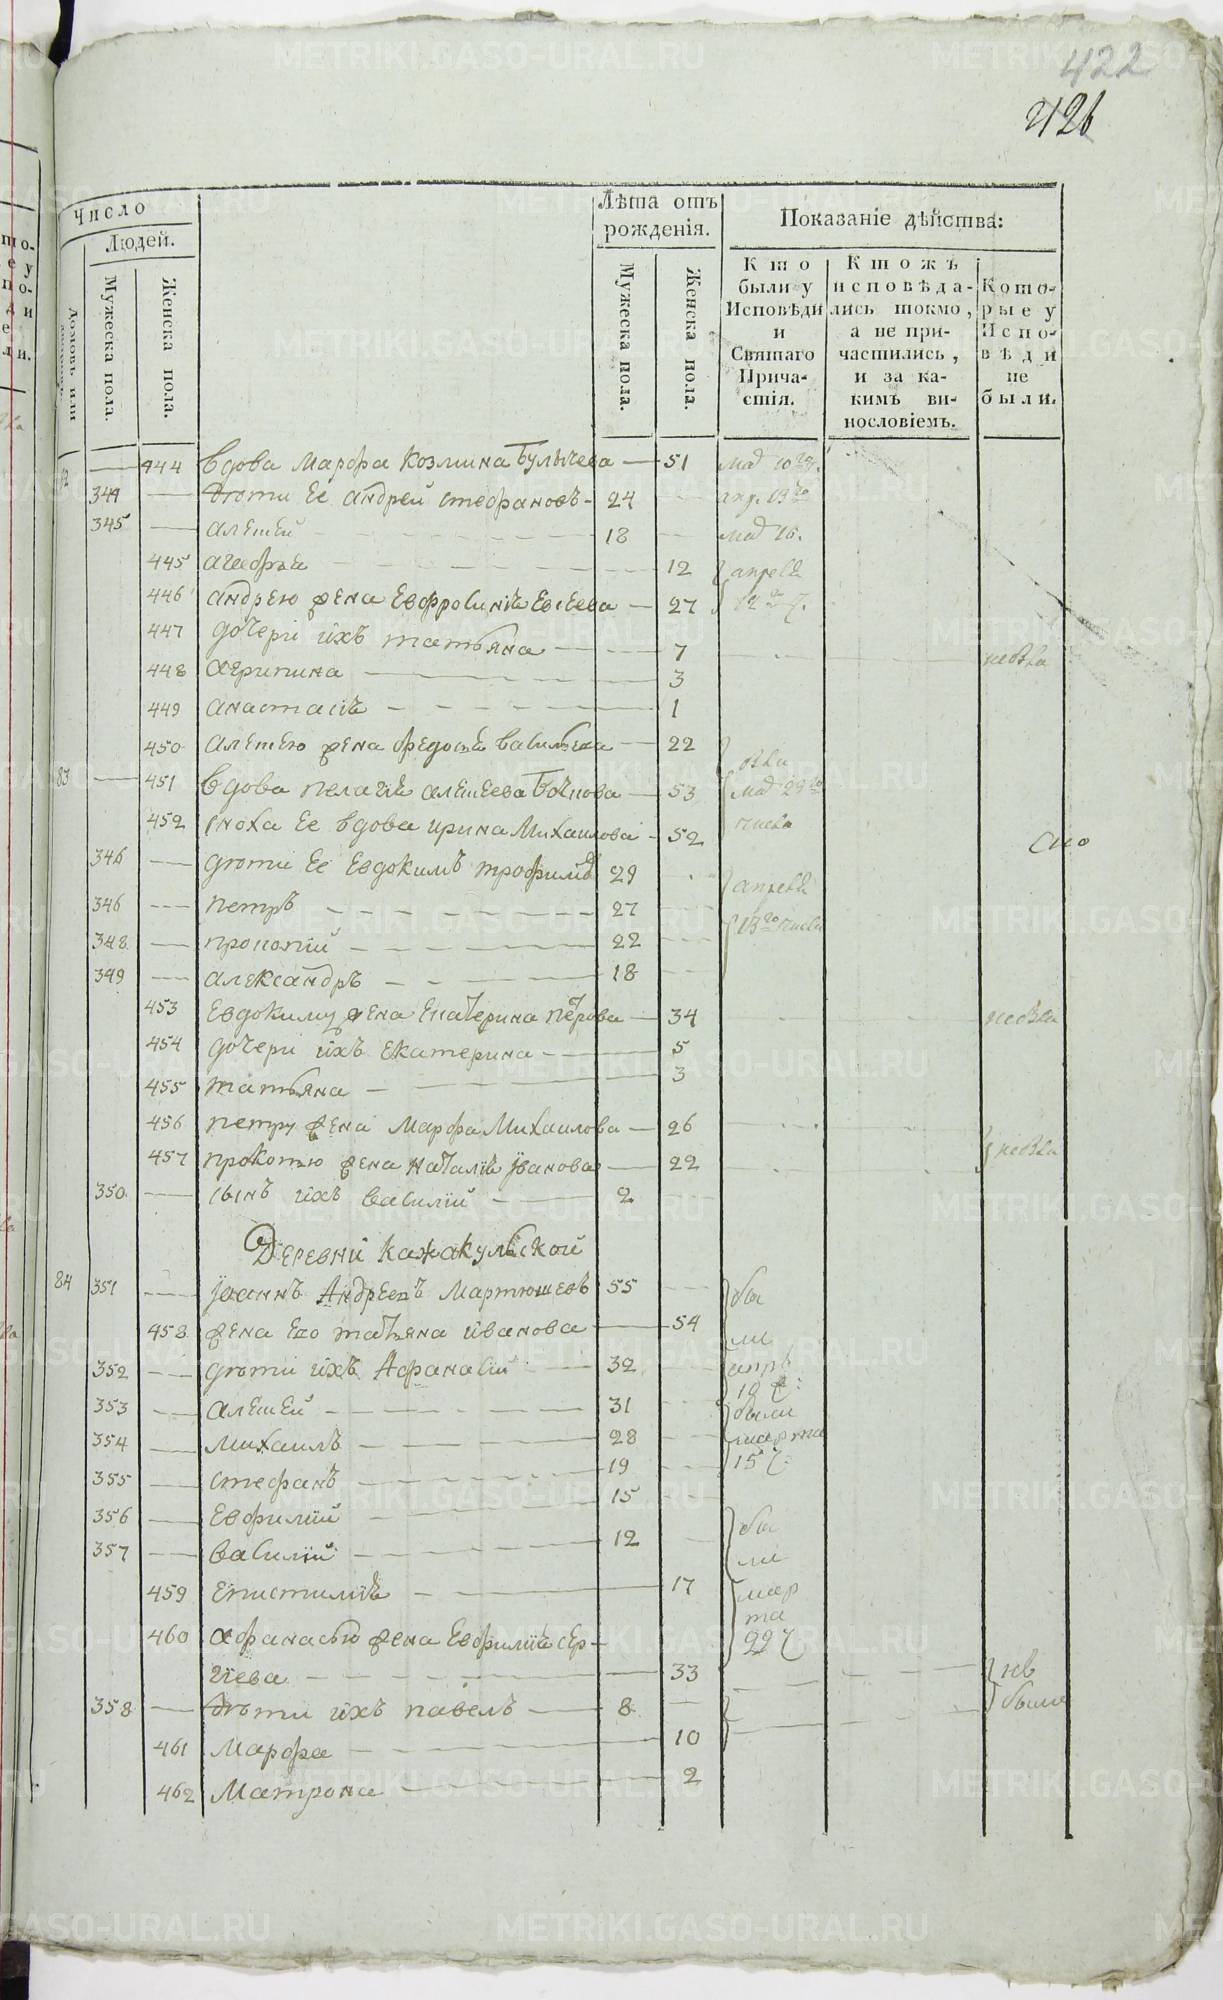 422
426
Число
Людей.
Домовъ или
Мужеска пола.
Женска пола.
Лѣта отъ рожденія.
Мужеска пола.
Женска пола.
Показаніе дѣйства:
Кто были у Исповѣди и Святаго Причастія.
Ктожъ исповѣдались токмо, а не причастились, и за какимъ винословіемъ.
Которые у Исповѣди не были.
444 вдова Марфа Козмина Булычева 51
344 дѣти ее андрей стефановъ 24
345 алексей 18 мар 16.
445 агафья 12 апреля
446 андрею жена Евфросинїя Евсеева 27 12 ч.
447 дочери ихъ татьяна 7
448 агрипина 3
449 анастасїя 1
450 алексею жена федосья васильева 22
83 451 вдова пелагїя алексеева 53
452 сноха ее вдова ирина Михаилова 52
346 дѣти ее Евдокимъ трофимовъ 29 апреля
346 петръ 27 13го числа
348 прокопїй 22
349 александръ 18
453 Евдокиму жена Екатерина петрова 34
454 дочери ихъ екатерина 5
455 татьяна 3
456 петру жена Марфа Михаилова 26
457 прокопью жена наталїя іванова 22
350 сынъ ихъ василїй 2
Деревни кажакульской
84 351 іоаннъ Андреевъ Мартюшевъ 55 бы
458 жена его татьяна иванова 54 ли
352 дѣти ихъ Афанасїй 32
353 алексей 31 были
354 михаилъ 28 марта
355 стефанъ 19 15 ч.
356 Евфимїй 15 бы
357 василїй 12 ли
459 епистимїя 17 мар
та
460 афанасью жена Евфимїя сер- 22 ч
гїева 33 не
358 дѣти ихъ павелъ 8 были
461 Марфа 10
462 Матрона 2
METRIKI.GASO-URAL.RU